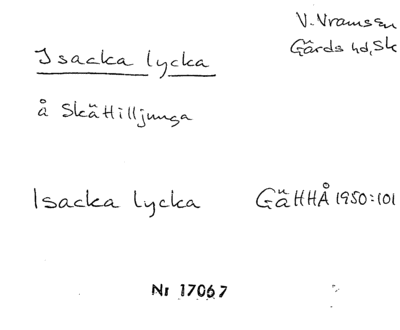 V. Vramsån
Gärds hd, Sk
Isacka lycka
å Skättilljunga
Isacka lycka GäHHÅ 1950:101
Nr 17067